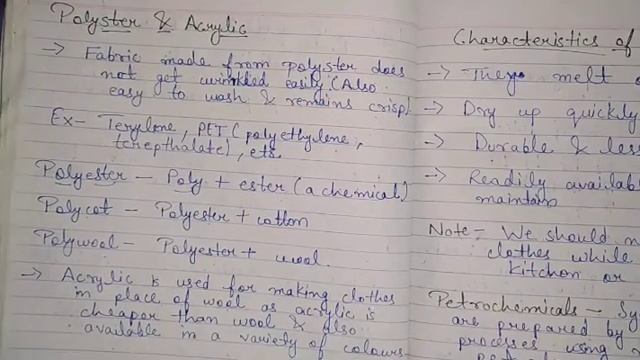 Polyster & Acrylic
→ Fabric made from polyster does
not get wrinkled easily (Also
easy to wash & remains crisp)
Ex- Terylene, PET (polyethylene,
terepthalate), ets.
Polyester - Poly + ester (a chemical)
Polycot - Polyester + cotton
Polywool - Polyester + wool
→ Acrylic is used for making clothes
in place of wool as acrylic is
cheaper than wool & also
available in a variety of colours
Characteristics of
→ They melt
→ Dry up quickly
→ Durable & less
→ Readily availab
maintain
Note = We should n
clothes while
kitchon or
Petrochemicals - Sy
are prepared by
processes using